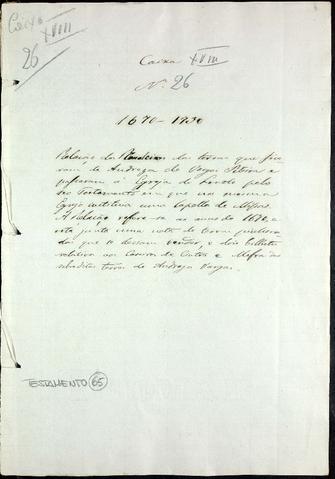 Caixa
XVIII
26
Caixa XVIII
Nº 26
1670-1730
Relação das das terras que fica
ram de Andreza de Vargas e
passaram á Egreja do Loreto pelo
seo Testamento em que na mesma
Egreja instituia uma Capella de Missas.
A Relação refere-se ao anno de 1692, e
está junta uma nota de terras
das que se devem vender, e dois bilhetes
relativos aos Casaes de e Mafra das
ditas terras de Andreza Vargas.
TESTAMENTO 65